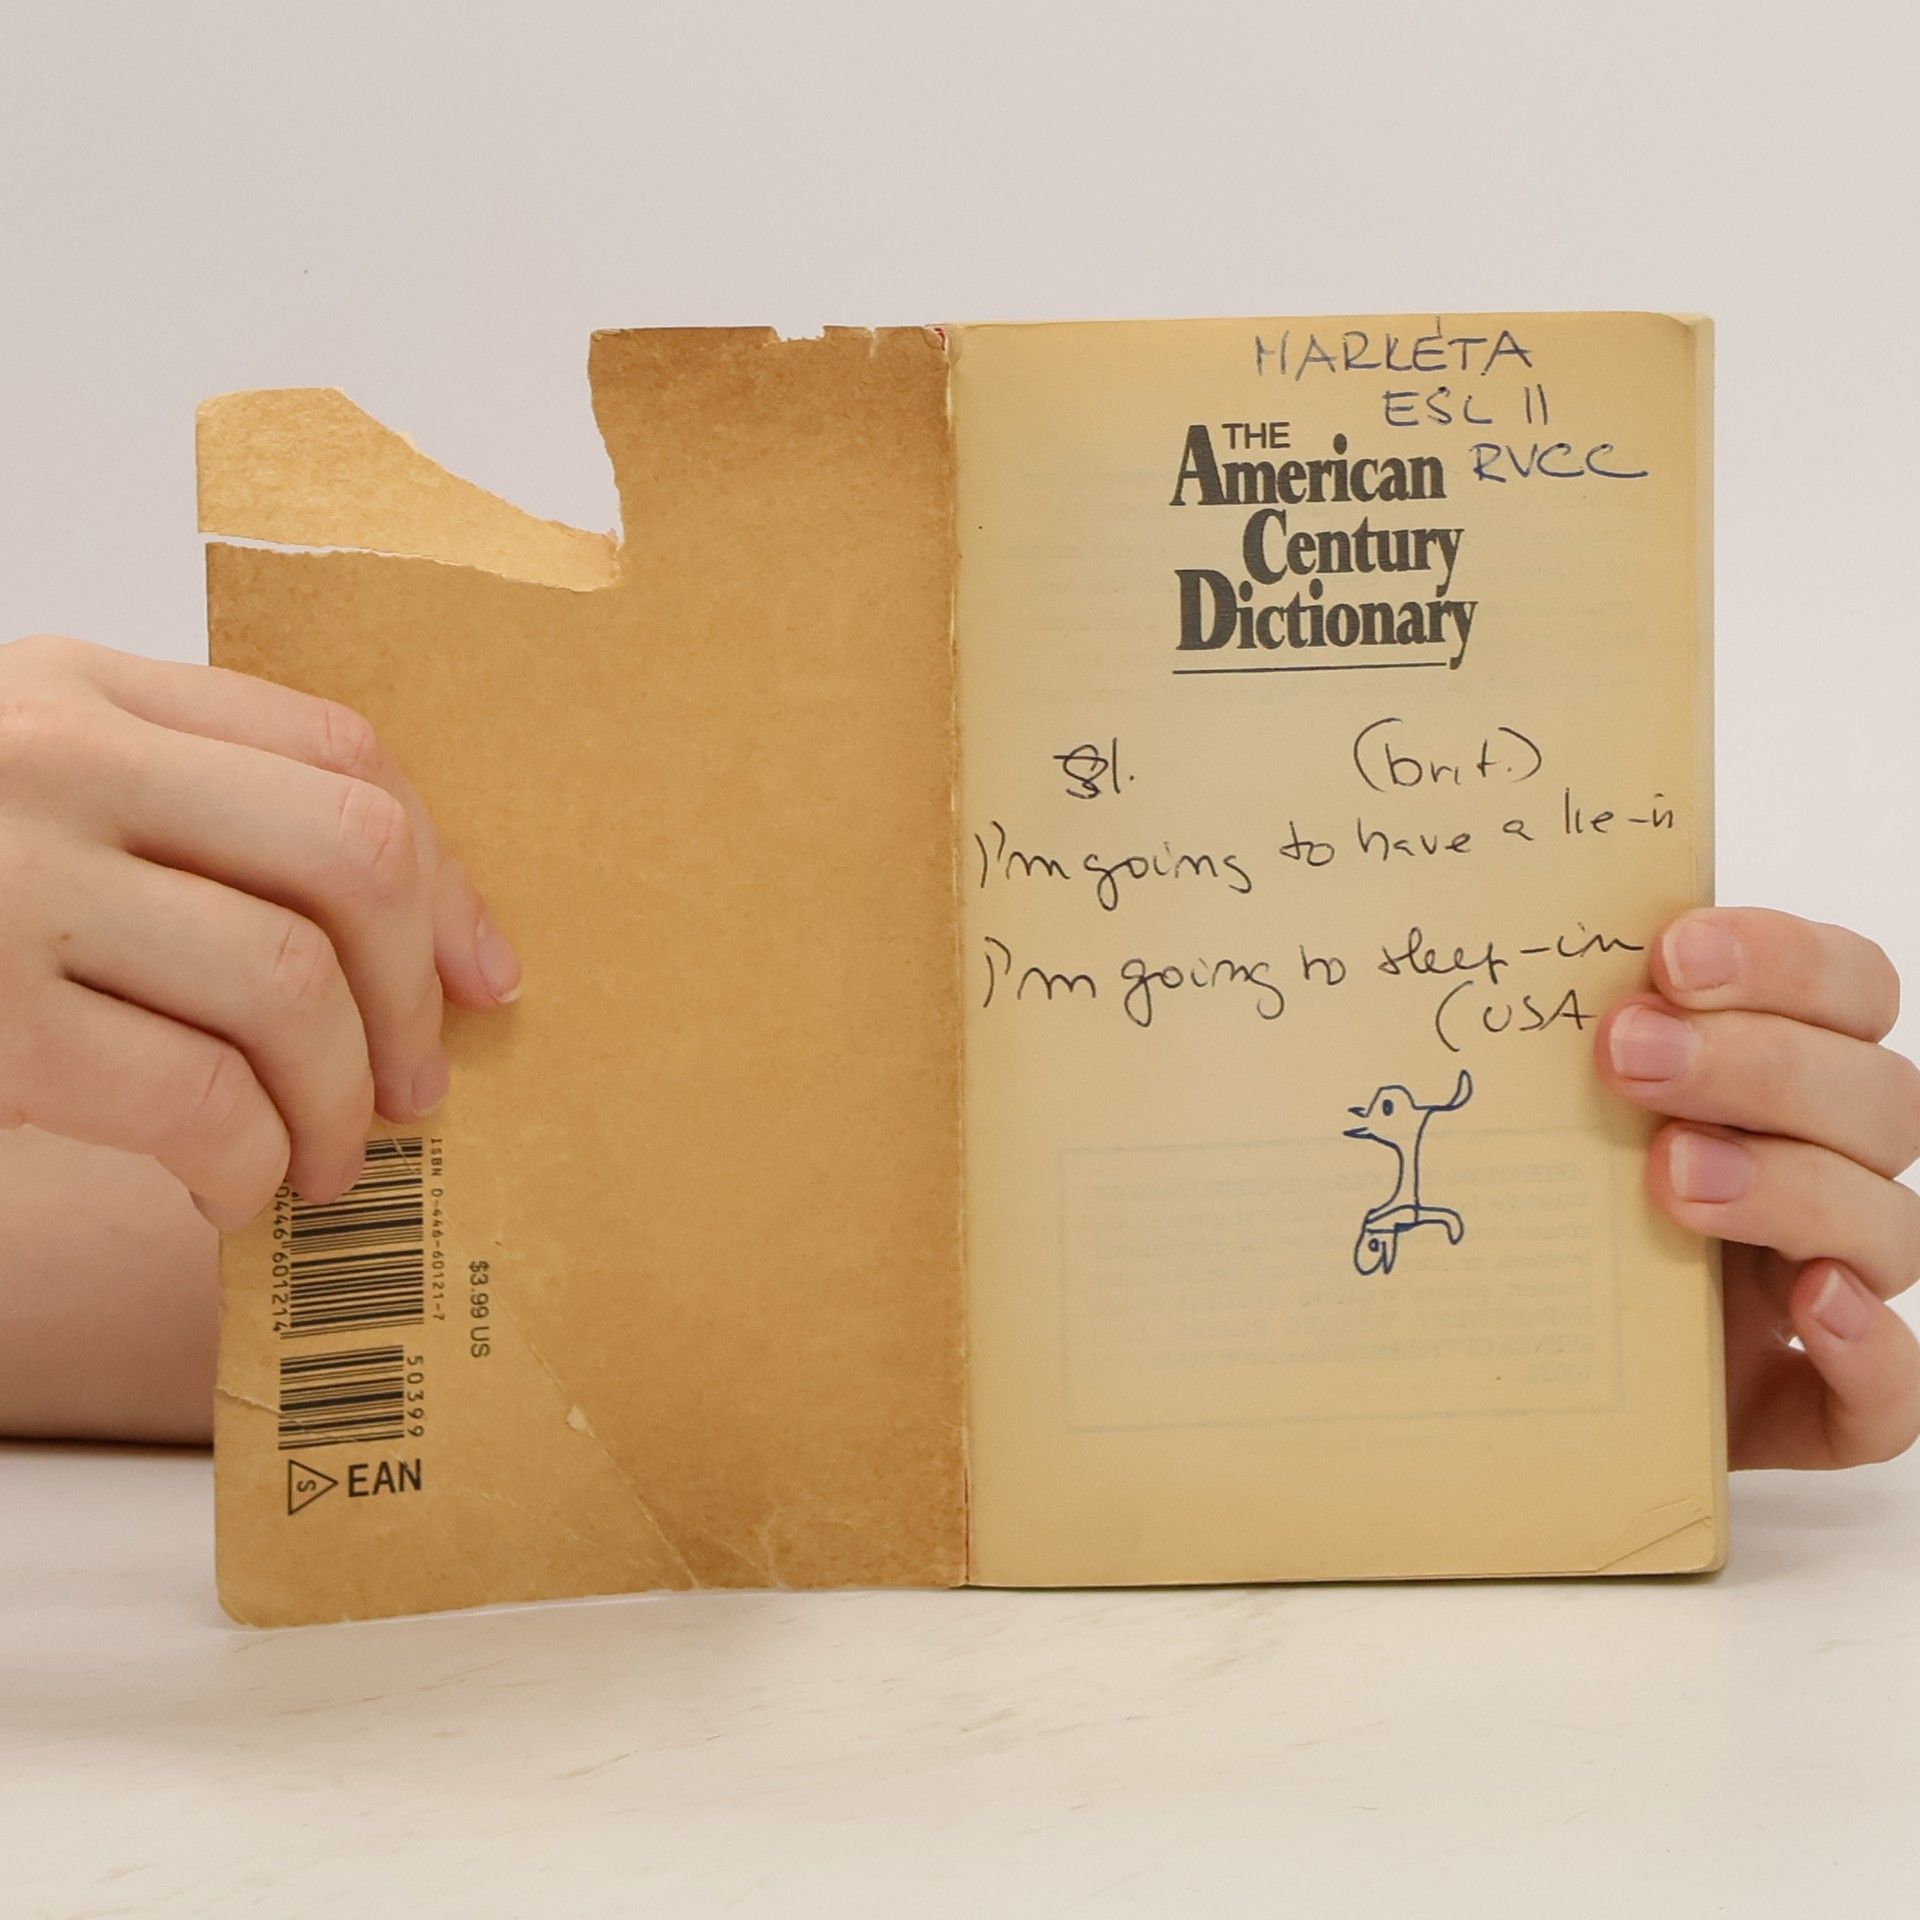 ISBN 0-446-60121-7
0446 60121 4
50399
$3.99 US
S EAN
MARKÉTA
ESL II
RVCC
THE
American
Century
Dictionary
(brit.)
I'm going to have a lie-in
I'm going to sleep-in
(USA